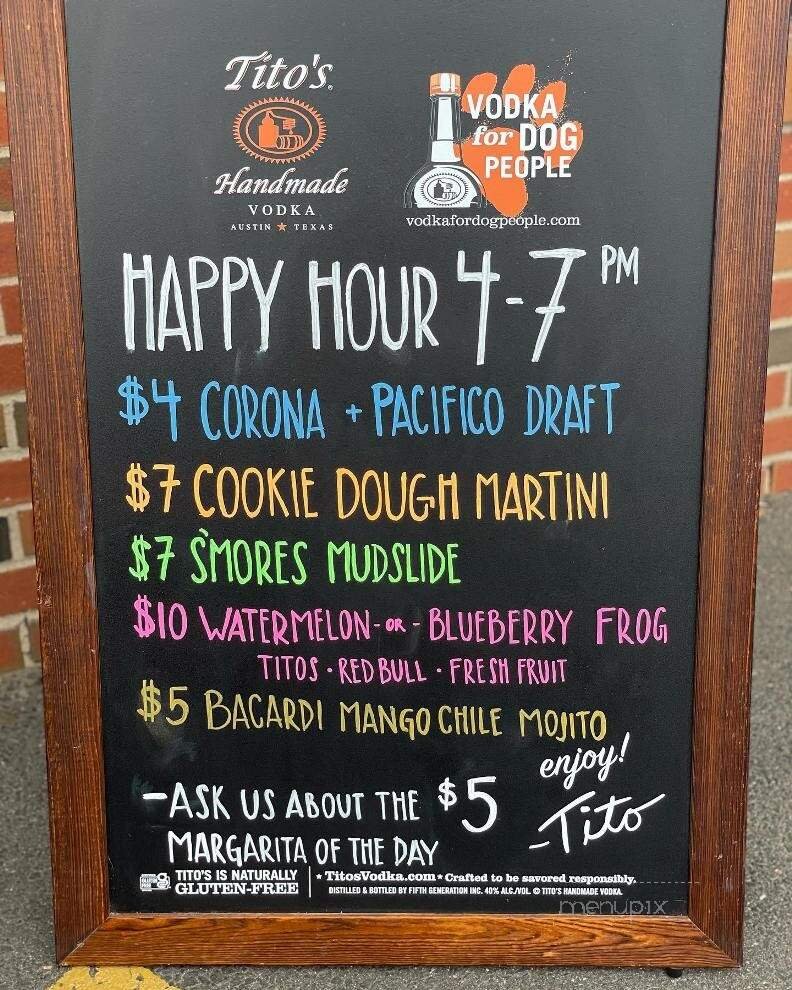 Tito's
Handmade
VODKA
AUSTIN ★ TEXAS
VODKA
for DOG
PEOPLE
vodkafordogpeople.com
HAPPY HOUR 4-7 PM
$4 CORONA + PACIFICO DRAFT
$7 COOKIE DOUGH MARTINI
$7 S'MORES MUDSLIDE
$10 WATERMELON - OR - BLUEBERRY FROG
TITOS · RED BULL · FRESH FRUIT
$5 BACARDI MANGO CHILE MOJITO
enjoy!
-Tito
-ASK US ABOUT THE $5
MARGARITA OF THE DAY
TITO'S IS NATURALLY
GLUTEN-FREE
★ TitosVodka.com ★ Crafted to be savored responsibly.
DISTILLED & BOTTLED BY FIFTH GENERATION INC. 40% ALC./VOL. © TITO'S HANDMADE VODKA.
menupix